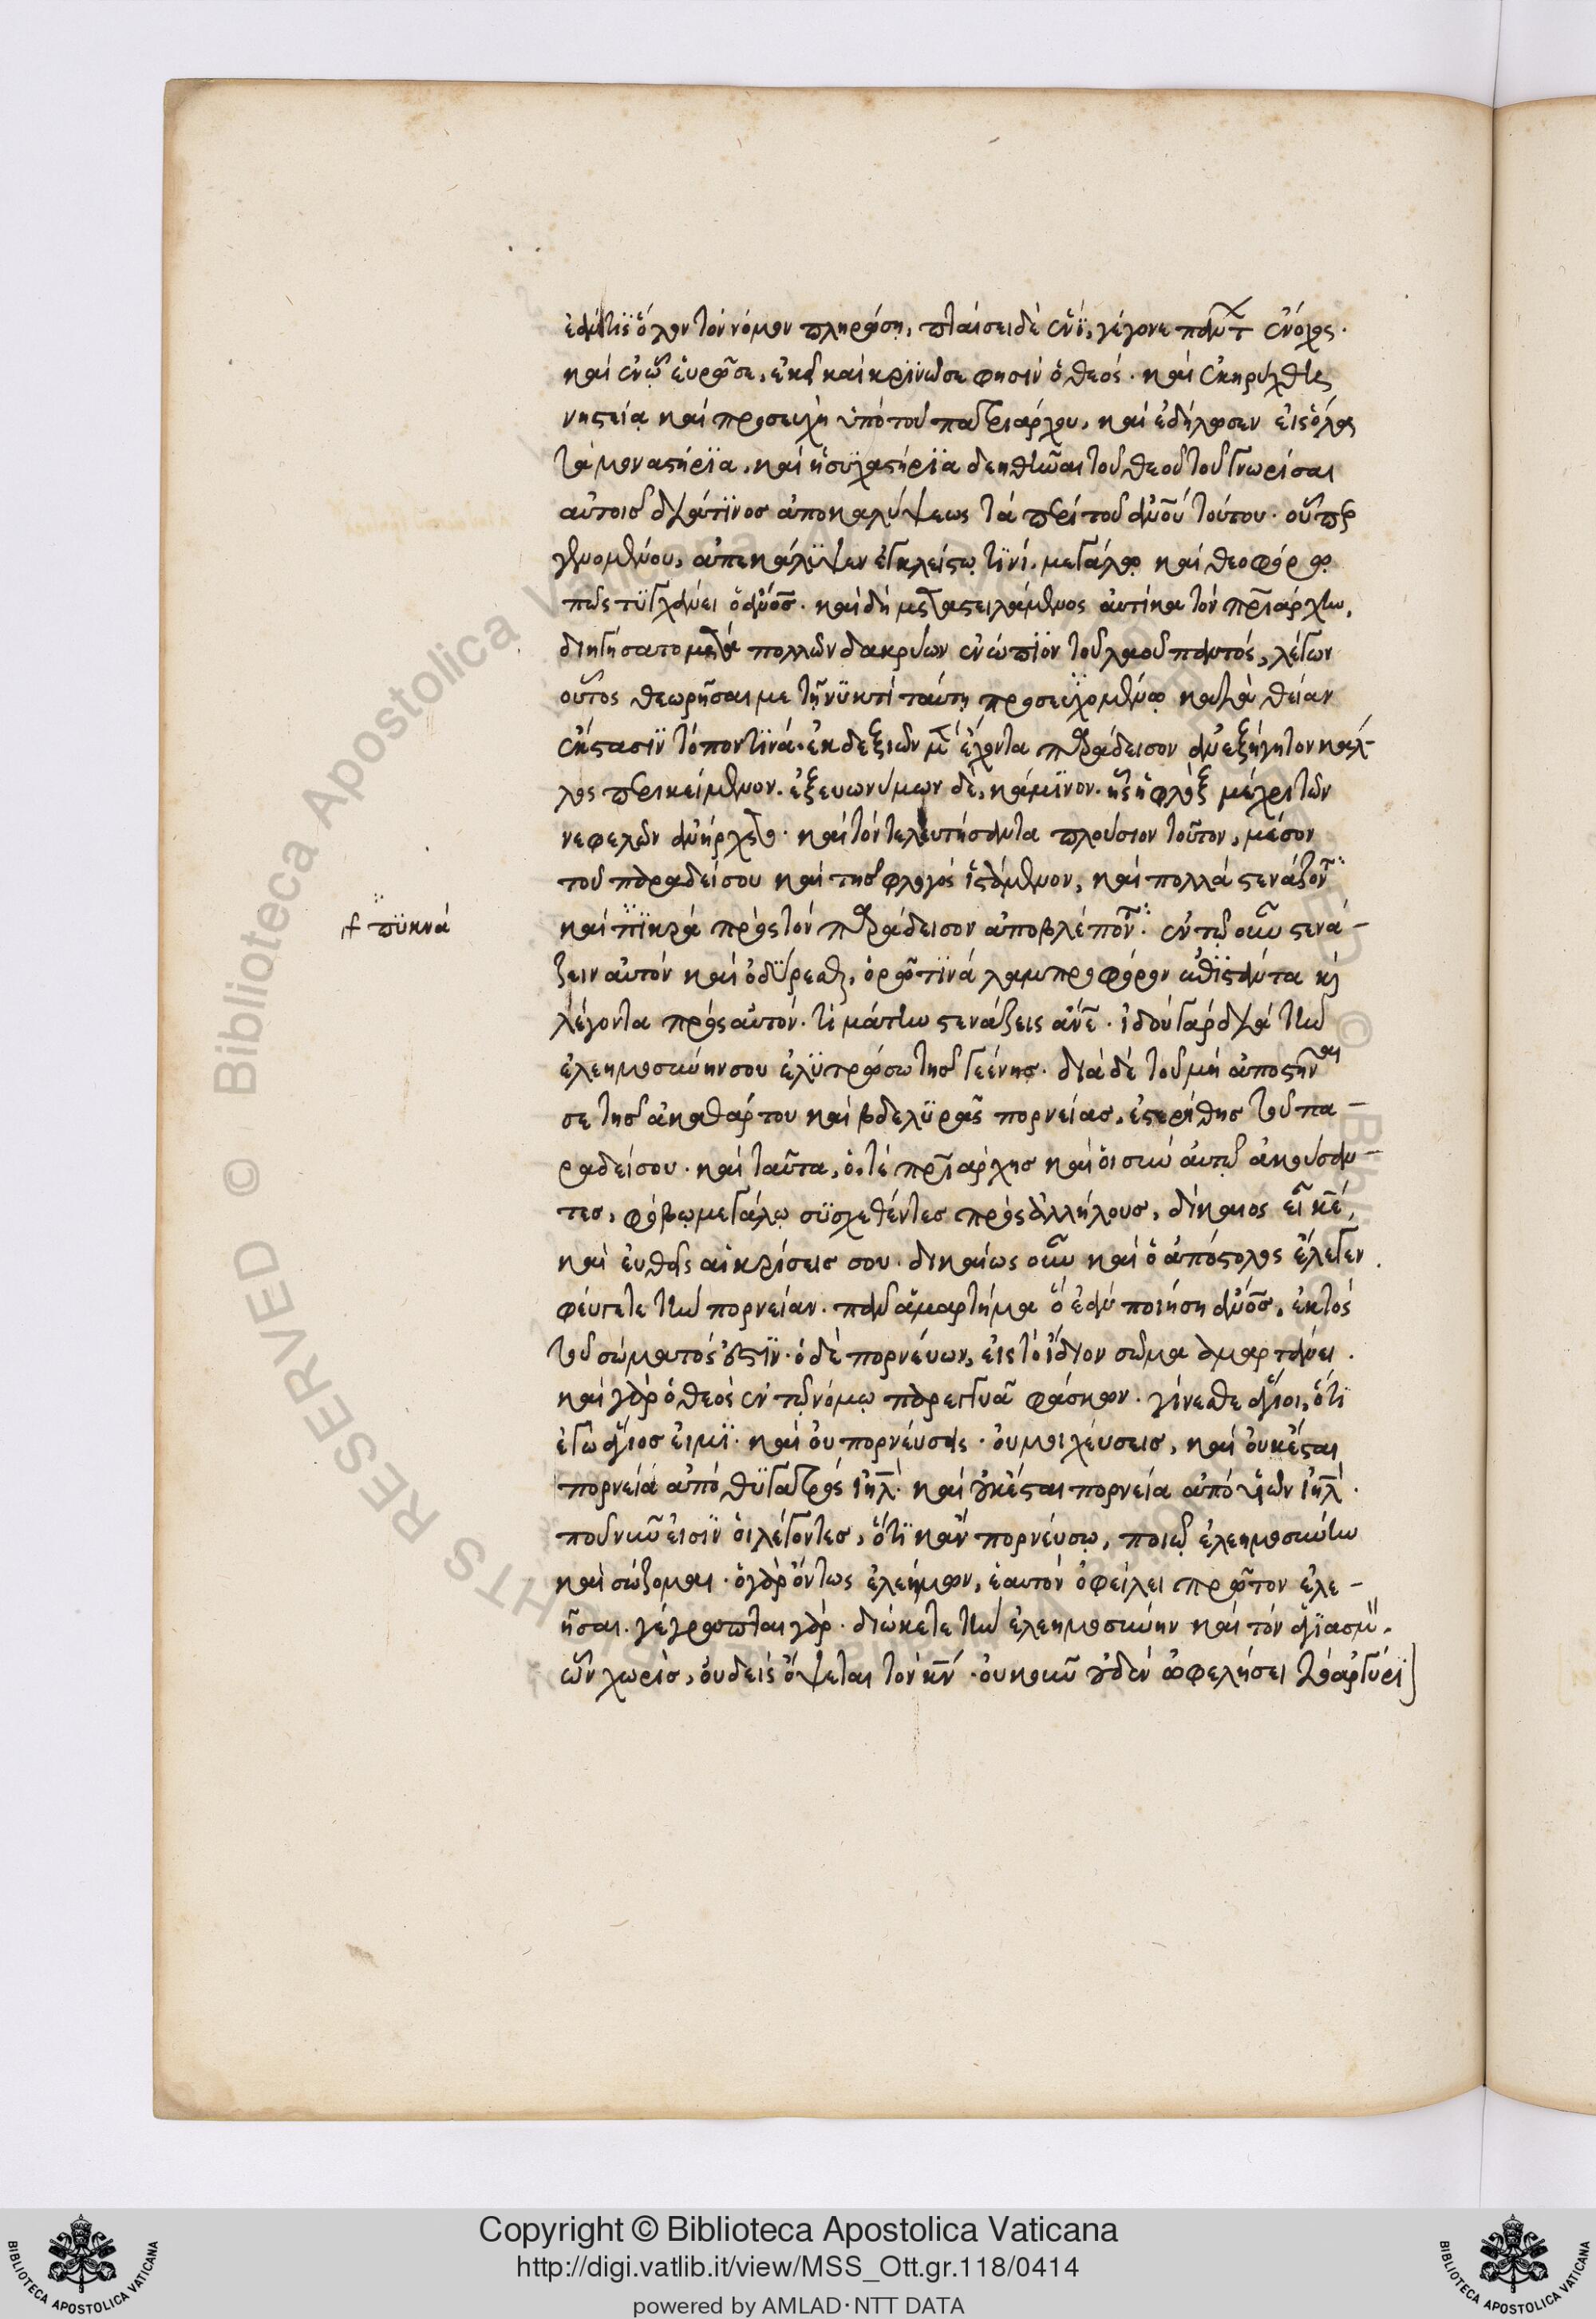 ἐάν τϊς ὅλον τὸν νόμον πληρώση, πταίσει δὲ ἑνὶ, γέγονε πάντ ἔνοχος.
καὶ ἐν ᾧ εὕρω σε, ἐκεῖ καὶ κρϊνῶ σε φησὶν ὁ θεός. καὶ ἐκηρύχθη
νηστεία καὶ προσευχὴ ὑπὸ τοῦ πατριάρχου, καὶ ἐδήλωσεν εἰς ὅλας
τὰ μοναστήρϊα, καὶ ἡσϋχαστήρϊα δεηθῆναι τοῦ θεοῦ τοῦ γνωρίσαι
αὐτοῖς διά τϊνος ἀποκαλύψεως τὰ περὶ τοῦ ἀνοῦ τούτου. οὗπερ
γενομένου, ἀπεκάλϋψεν ἐγκλείστω τϊνί. μεγάλω καὶ θεοφόρω
πῶς τϋγχάνει ὁ ἀνός. καὶ δὴ μεταστειλάμενος αὐτίκα τὸν πριάρχην,
διηγήσατο μετὰ πολλῶν δακρύων ἐνώπϊον τοῦ λαοῦ παντός, λέγων
οὕτως θεωρῆσαι με τῆ νϋκτὶ ταύτη προσευχομένω κατὰ θείαν
ἔκστασϊν τόπον τϊνά. ἐκ δεξιῶν μὲ ἔχοντα παράδεισον ἀνεξήγητον κάλ-
λος περικείμενον. ἐξ εὐωνύμων δὲ, κάμϊνον. ἧς ἡ φλὸξ μέχρι τῶν
νεφελῶν ἀνήρχετο. καὶ τὸν τελευτήσαντα πλούσιον τοῦτον, μέσον
τοῦ παραδείσου καὶ τῆς φλογὸς ἱστάμενον, καὶ πολλὰ στενάζον
καὶ πϊκρὰ πρὸς τὸν παράδεισον ἀποβλέπον. ἐν τῷ οὖν στενά-
+ πϋκνά
ζειν αὐτὸν καὶ ὀδϋρεσθαι, ὁρῶ τϊνὰ λαμπροφόρον ἐπϊστάντα κὶ
λέγοντα πρὸς αὐτόν. τί μάτην στενάζεις ἄνε. ἰδοὺ γὰρ διὰ τὴν
ἐλεημοσύνην σου ἐλϋτρώσω τῆς γεένης. διὰ δὲ τοῦ μὴ ἀποστῆναι
σε τῆς ἀκαθάρτου καὶ βδελϋρᾶς πορνείας, ἐστερήθης τοῦ πα-
ραδείσου. καὶ ταῦτα, ὅ, τε πριάρχης καὶ οἱ σὺν αὐτῷ ἀκούσαν-
τες, φόβω μεγάλω σϋσχεθέντες πρὸς ἀλλήλους, δίκαιος εἶ κέ,
καὶ εὐθεῖς αἱ κρίσεις σου. δικαίως οὖν καὶ ὁ ἀπόστολος ἔλεγεν
φεύγετε τὴν πορνείαν. πᾶν ἁμαρτήμα ὃ ἐὰν ποιήση ἀνός, ἐκτὸς
τοῦ σώματός ἐστϊν. ὁ δὲ πορνεύων, εἰς τὸ ἴδιον σῶμα ἁμαρτάνει.
καὶ γὰρ ὁ θεὸς ἐν τῷ νόμω παρεγγυᾶ φάσκων. γίνεσθε ἅγιοι, ὅτι
ἐγὼ ἅγιος εἰμϊ. καὶ οὐ πορνεύσεις. οὐ μοιχεύσεις, καὶ οὐκ ἔσται
πορνεία ἀπὸ θϋγατρὸς ἰηλ. καὶ οὐκ ἔσται πορνεία ἀπὸ υἱῶν ἰηλ.
ποῦ νῦν εἰσϊν οἱ λέγοντες, ὅτϊ κἂν πορνεύσω, ποιῶ ἐλεημοσύνην
καὶ σώζομαι. ὁ γὰρ ὄντως ἐλεήμων, ἑαυτὸν ὀφείλει πρῶτον ἐλε-
ῆσαι. γέγραπται γάρ. διώκετε τὴν ἐλεημοσύνην καὶ τὸν ἁγϊασμ.
ὧν χωρὶς, οὐδεὶς ὄψεται τὸν κν. οὐκοῦν οὐδὲν ὠφελήσει τὸ ἀργύρι